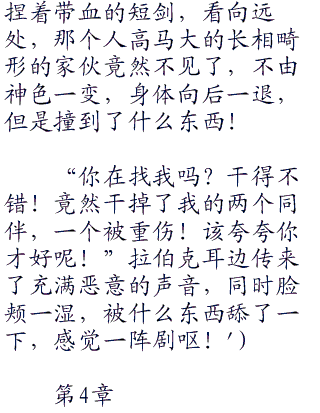 捏着带血的短剑，看向远
处，那个人高马大的长相畸
形的家伙竟然不见了，不由
神色一变，身体向后一退，
但是撞到了什么东西！
“你在找我吗？干得不
错！竟然干掉了我的两个同
伴，一个被重伤！该夸夸你
才好呢！”拉伯克耳边传来
了充满恶意的声音，同时脸
颊一湿，被什么东西舔了一
下，感觉一阵剧呕！′）
第4章